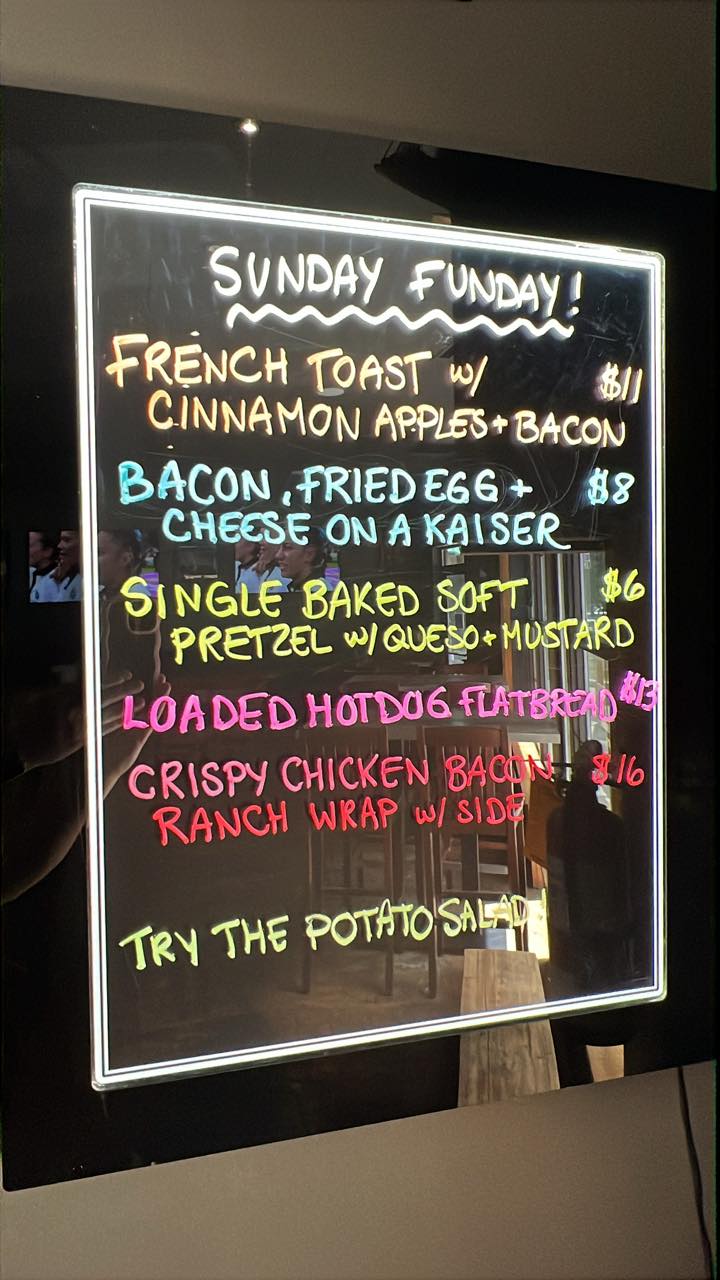 SUNDAY FUNDAY!
FRENCH TOAST w/ $11
CINNAMON APPLES + BACON
BACON, FRIED EGG + $8
CHEESE ON A KAISER
SINGLE BAKED SOFT $6
PRETZEL w/ QUESO + MUSTARD
LOADED HOTDOG FLATBREAD $13
CRISPY CHICKEN BACON $16
RANCH WRAP w/ SIDE
TRY THE POTATO SALAD!